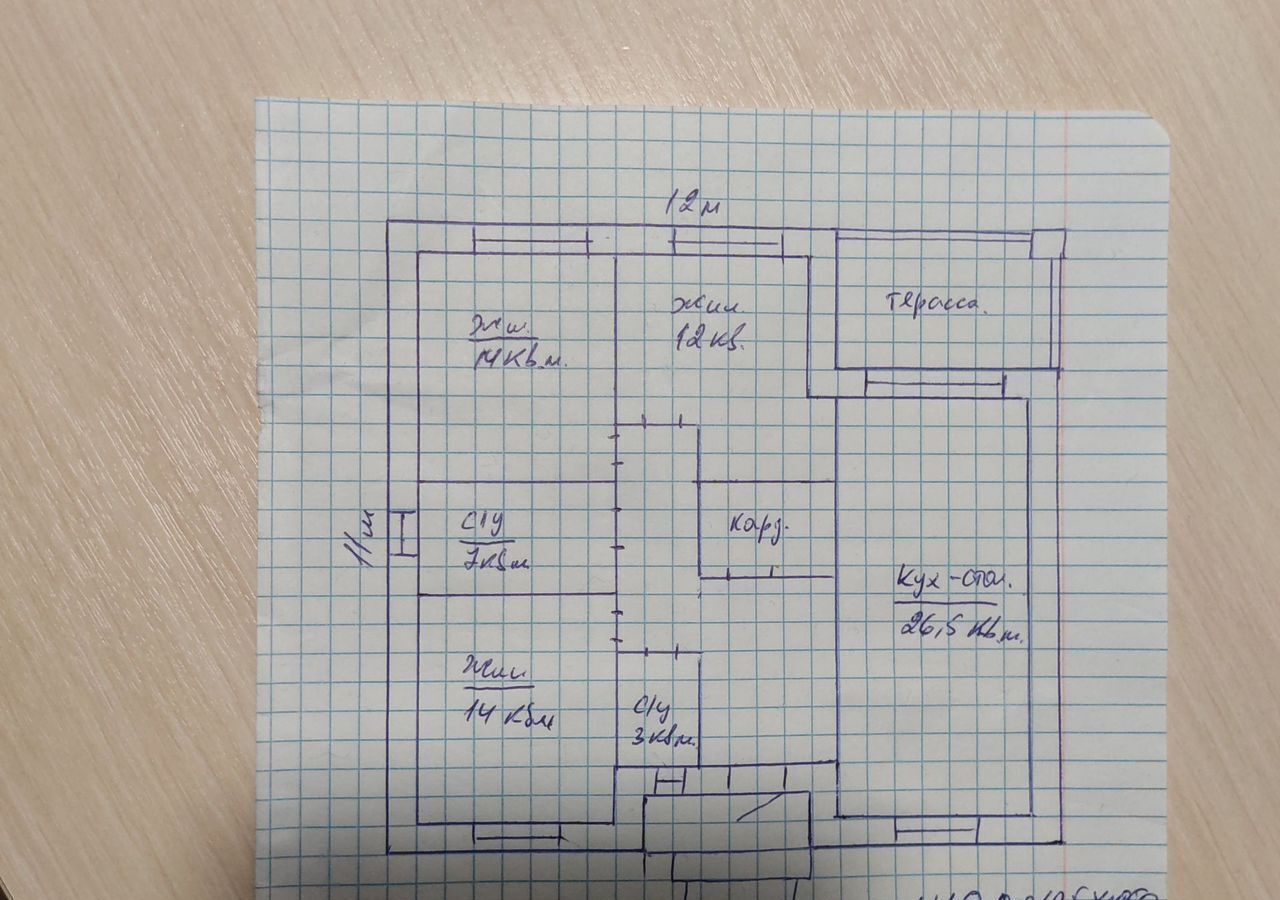 12м
Жил.
14 кв.м.
Жил.
12 кв.
терасса.
11м
с/у
7кв.м
кард.
Кух-стол.
26,5 кв.м.
Жил
14 кв.м
с/у
3 кв.м.